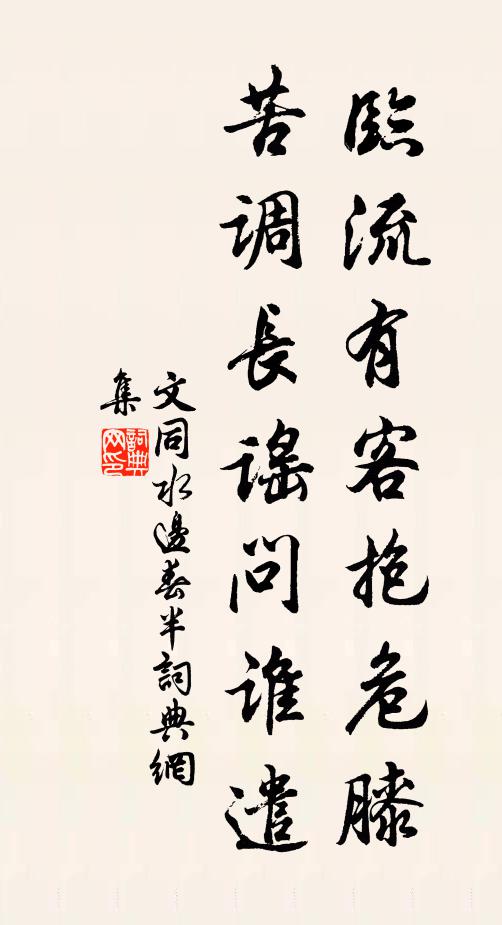 臨流有客抱危膝
苦調長謠問誰遣
文同水邊春半詞典網
集
詞典網印